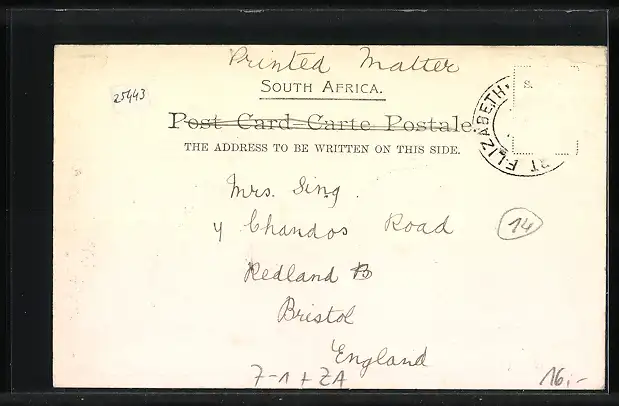 Printed Matter
SOUTH AFRICA.
25443
Post Card–Carte Postale.
THE ADDRESS TO BE WRITTEN ON THIS SIDE.
S.
RT ELIZABETH.
Mrs. Sing.
4 Chandos Road
14
Redland B
Bristol
England
7-1 + ZA
16,-